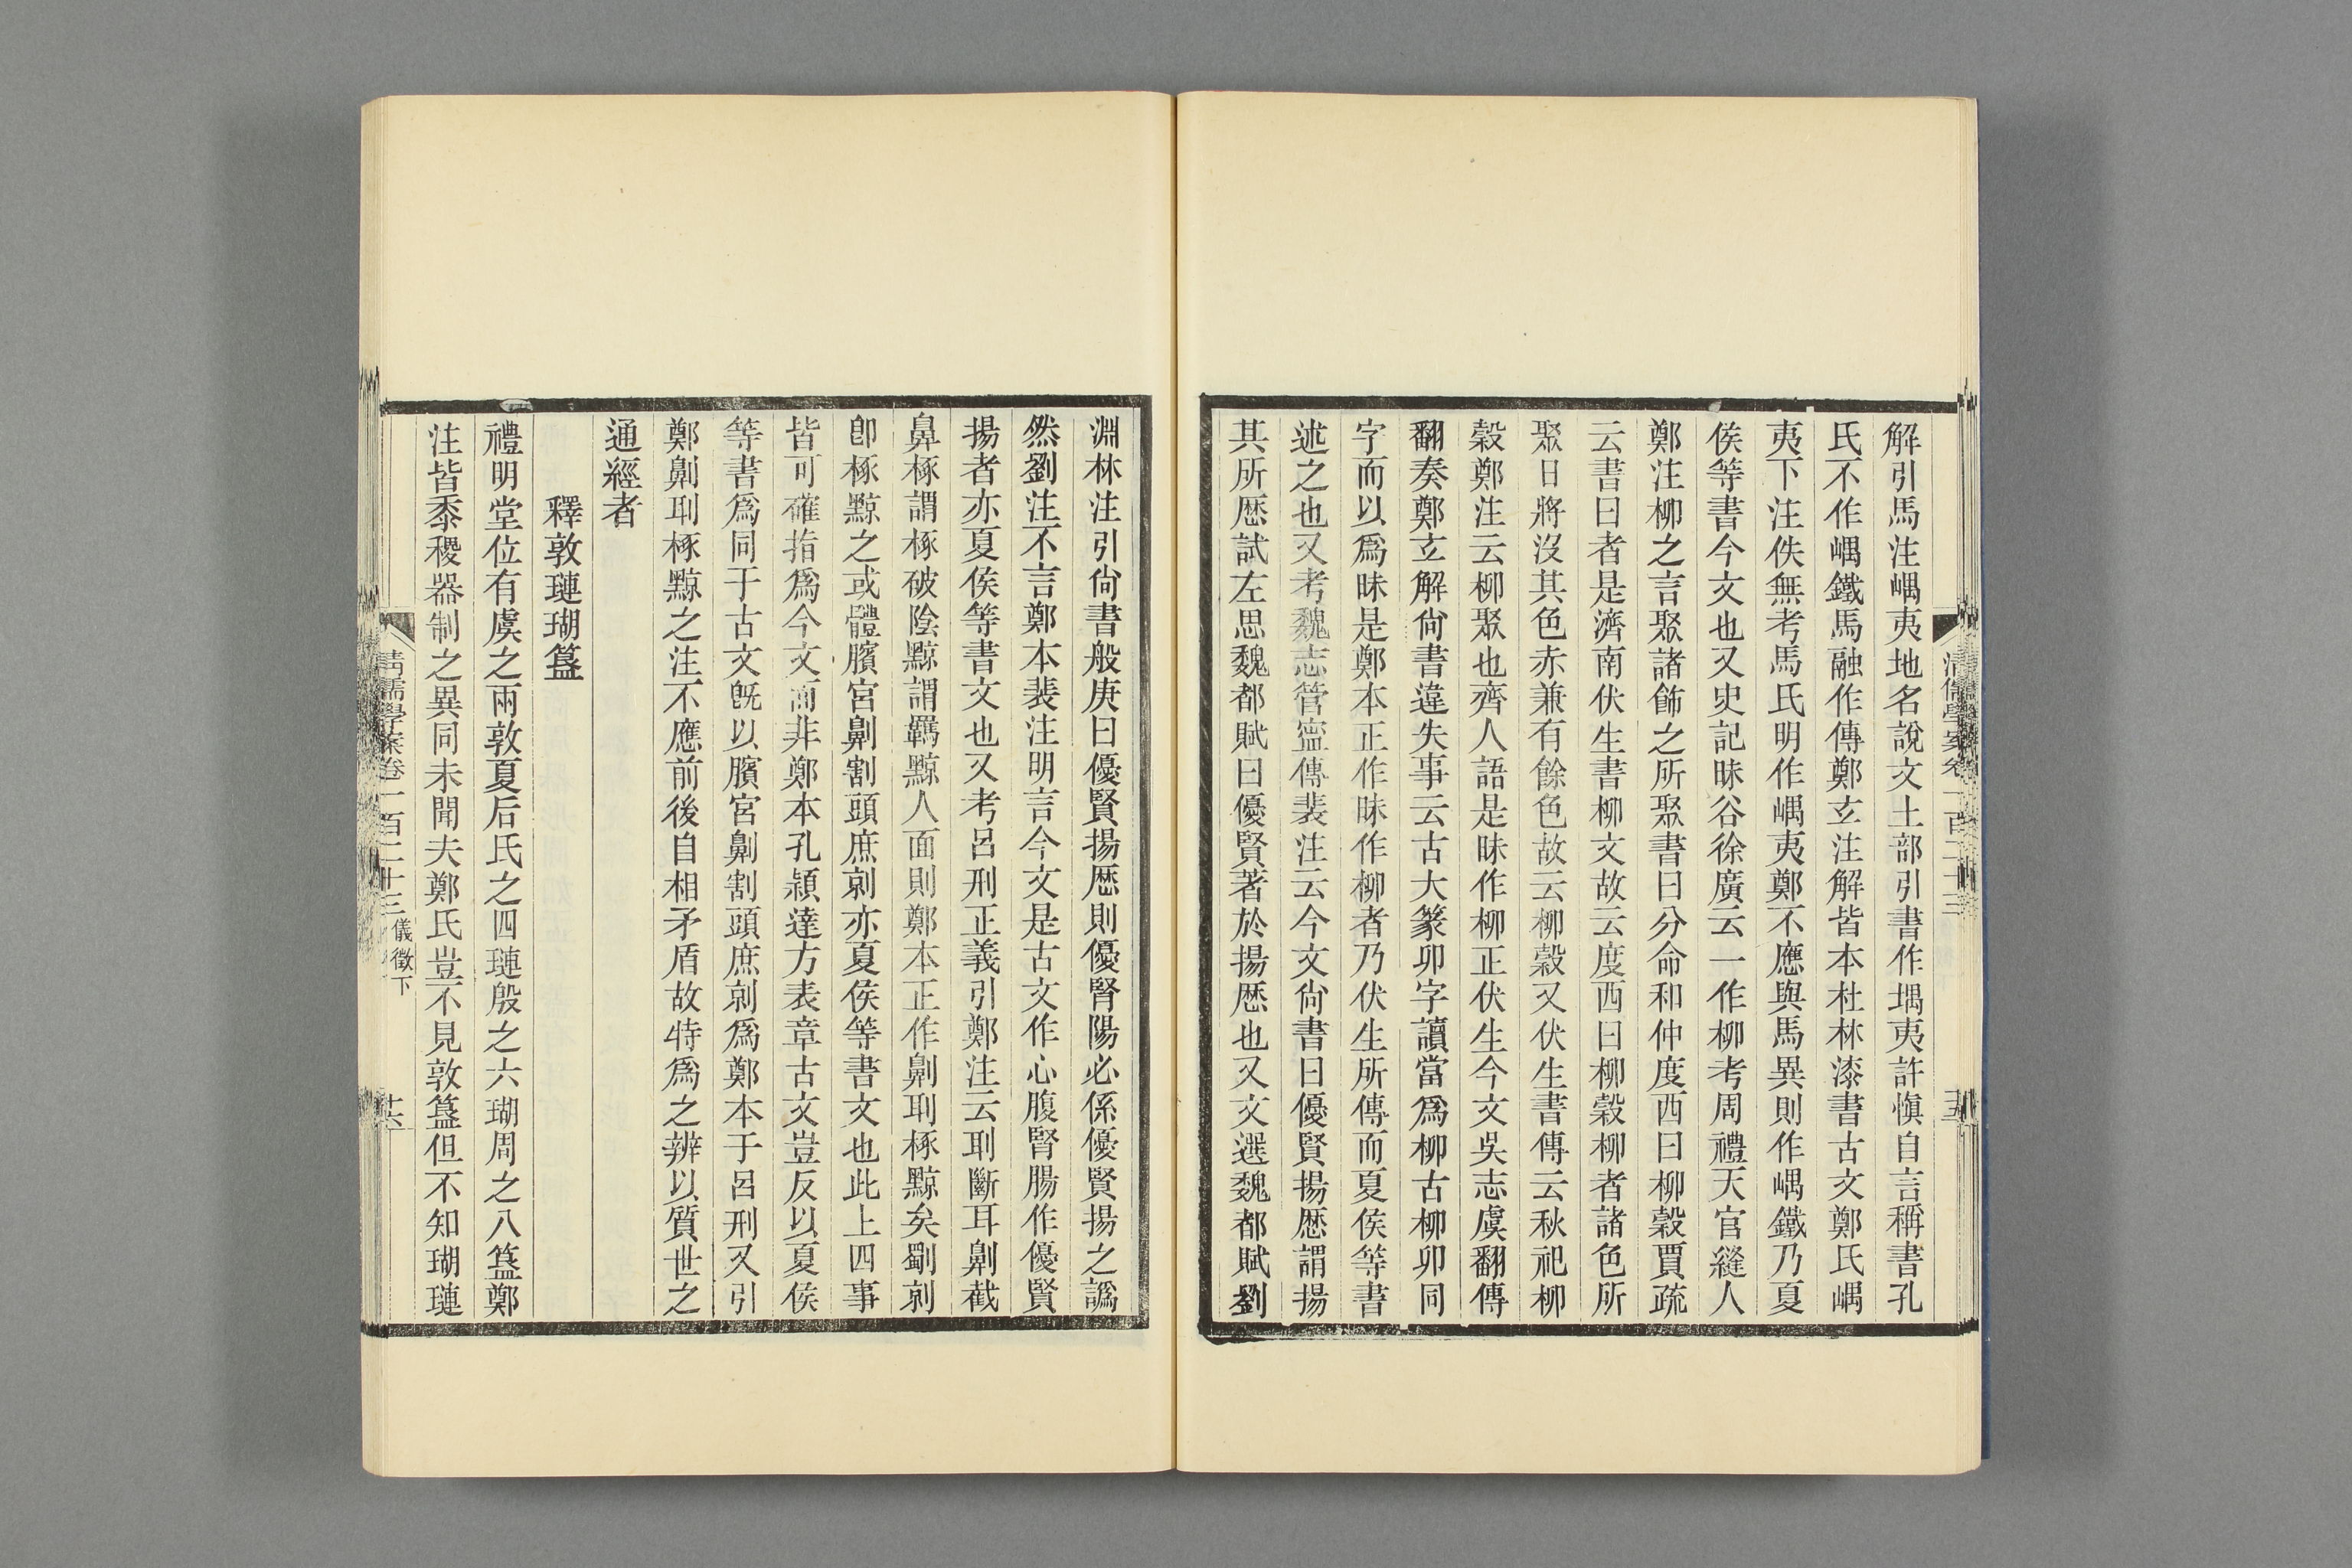 解引馬注嵎夷地名說文土部引書作堣夷許愼自言稱書孔
氏不作嵎鐵馬融作傳鄭玄注解皆本杜林漆書古文鄭氏嵎
夷下注佚無考馬氏明作嵎夷鄭不應與馬異則作嵎鐵乃夏
侯等書今文也又史記昧谷徐廣云一作柳考周禮天官縫人
鄭注柳之言聚諸飾之所聚書曰分命和仲度西曰柳穀賈疏
云書曰者是濟南伏生書柳文故云度西曰柳穀柳者諸色所
聚日將沒其色赤兼有餘色故云柳穀又伏生書傳云秋祀柳
穀鄭注云柳聚也齊人語是昧作柳正伏生今文吳志虞翻傳
翻奏鄭玄解尙書違失事云古大篆卯字讀當爲柳古柳卯同
字而以爲昧是鄭本正作昧作柳者乃伏生所傳而夏侯等書
述之也又考魏志管寍傳裴注云今文尙書曰優賢揚歷謂揚
其所歷試左思魏都賦曰優賢著於揚歷也又文選魏都賦劉
淸儒學案卷一百二十三
淵林注引尙書般庚曰優賢揚歷則優腎陽必係優賢揚之譌
然劉注不言鄭本裴注明言今文是古文作心腹腎腸作優賢
揚者亦夏侯等書文也又考呂刑正義引鄭注云刵斷耳劓截
鼻椓謂椓破陰黥謂羈黥人面則鄭本正作劓刵椓黥矣劅剠
卽椓黥之或體臏宮劓割頭庶剠亦夏侯等書文也此上四事
皆可確指爲今文而非鄭本孔穎達方表章古文豈反以夏侯
等書爲同于古文旣以臏宮劓割頭庶剠爲鄭本于呂刑又引
鄭劓刵椓黥之注不應前後自相矛盾故特爲之辨以質世之
通經者
釋敦璉瑚簋
禮明堂位有虞之兩敦夏后氏之四璉殷之六瑚周之八簋鄭
注皆黍稷器制之異同未聞夫鄭氏豈不見敦簋但不知瑚璉
淸儒學案卷一百二十三 儀徵下 十六